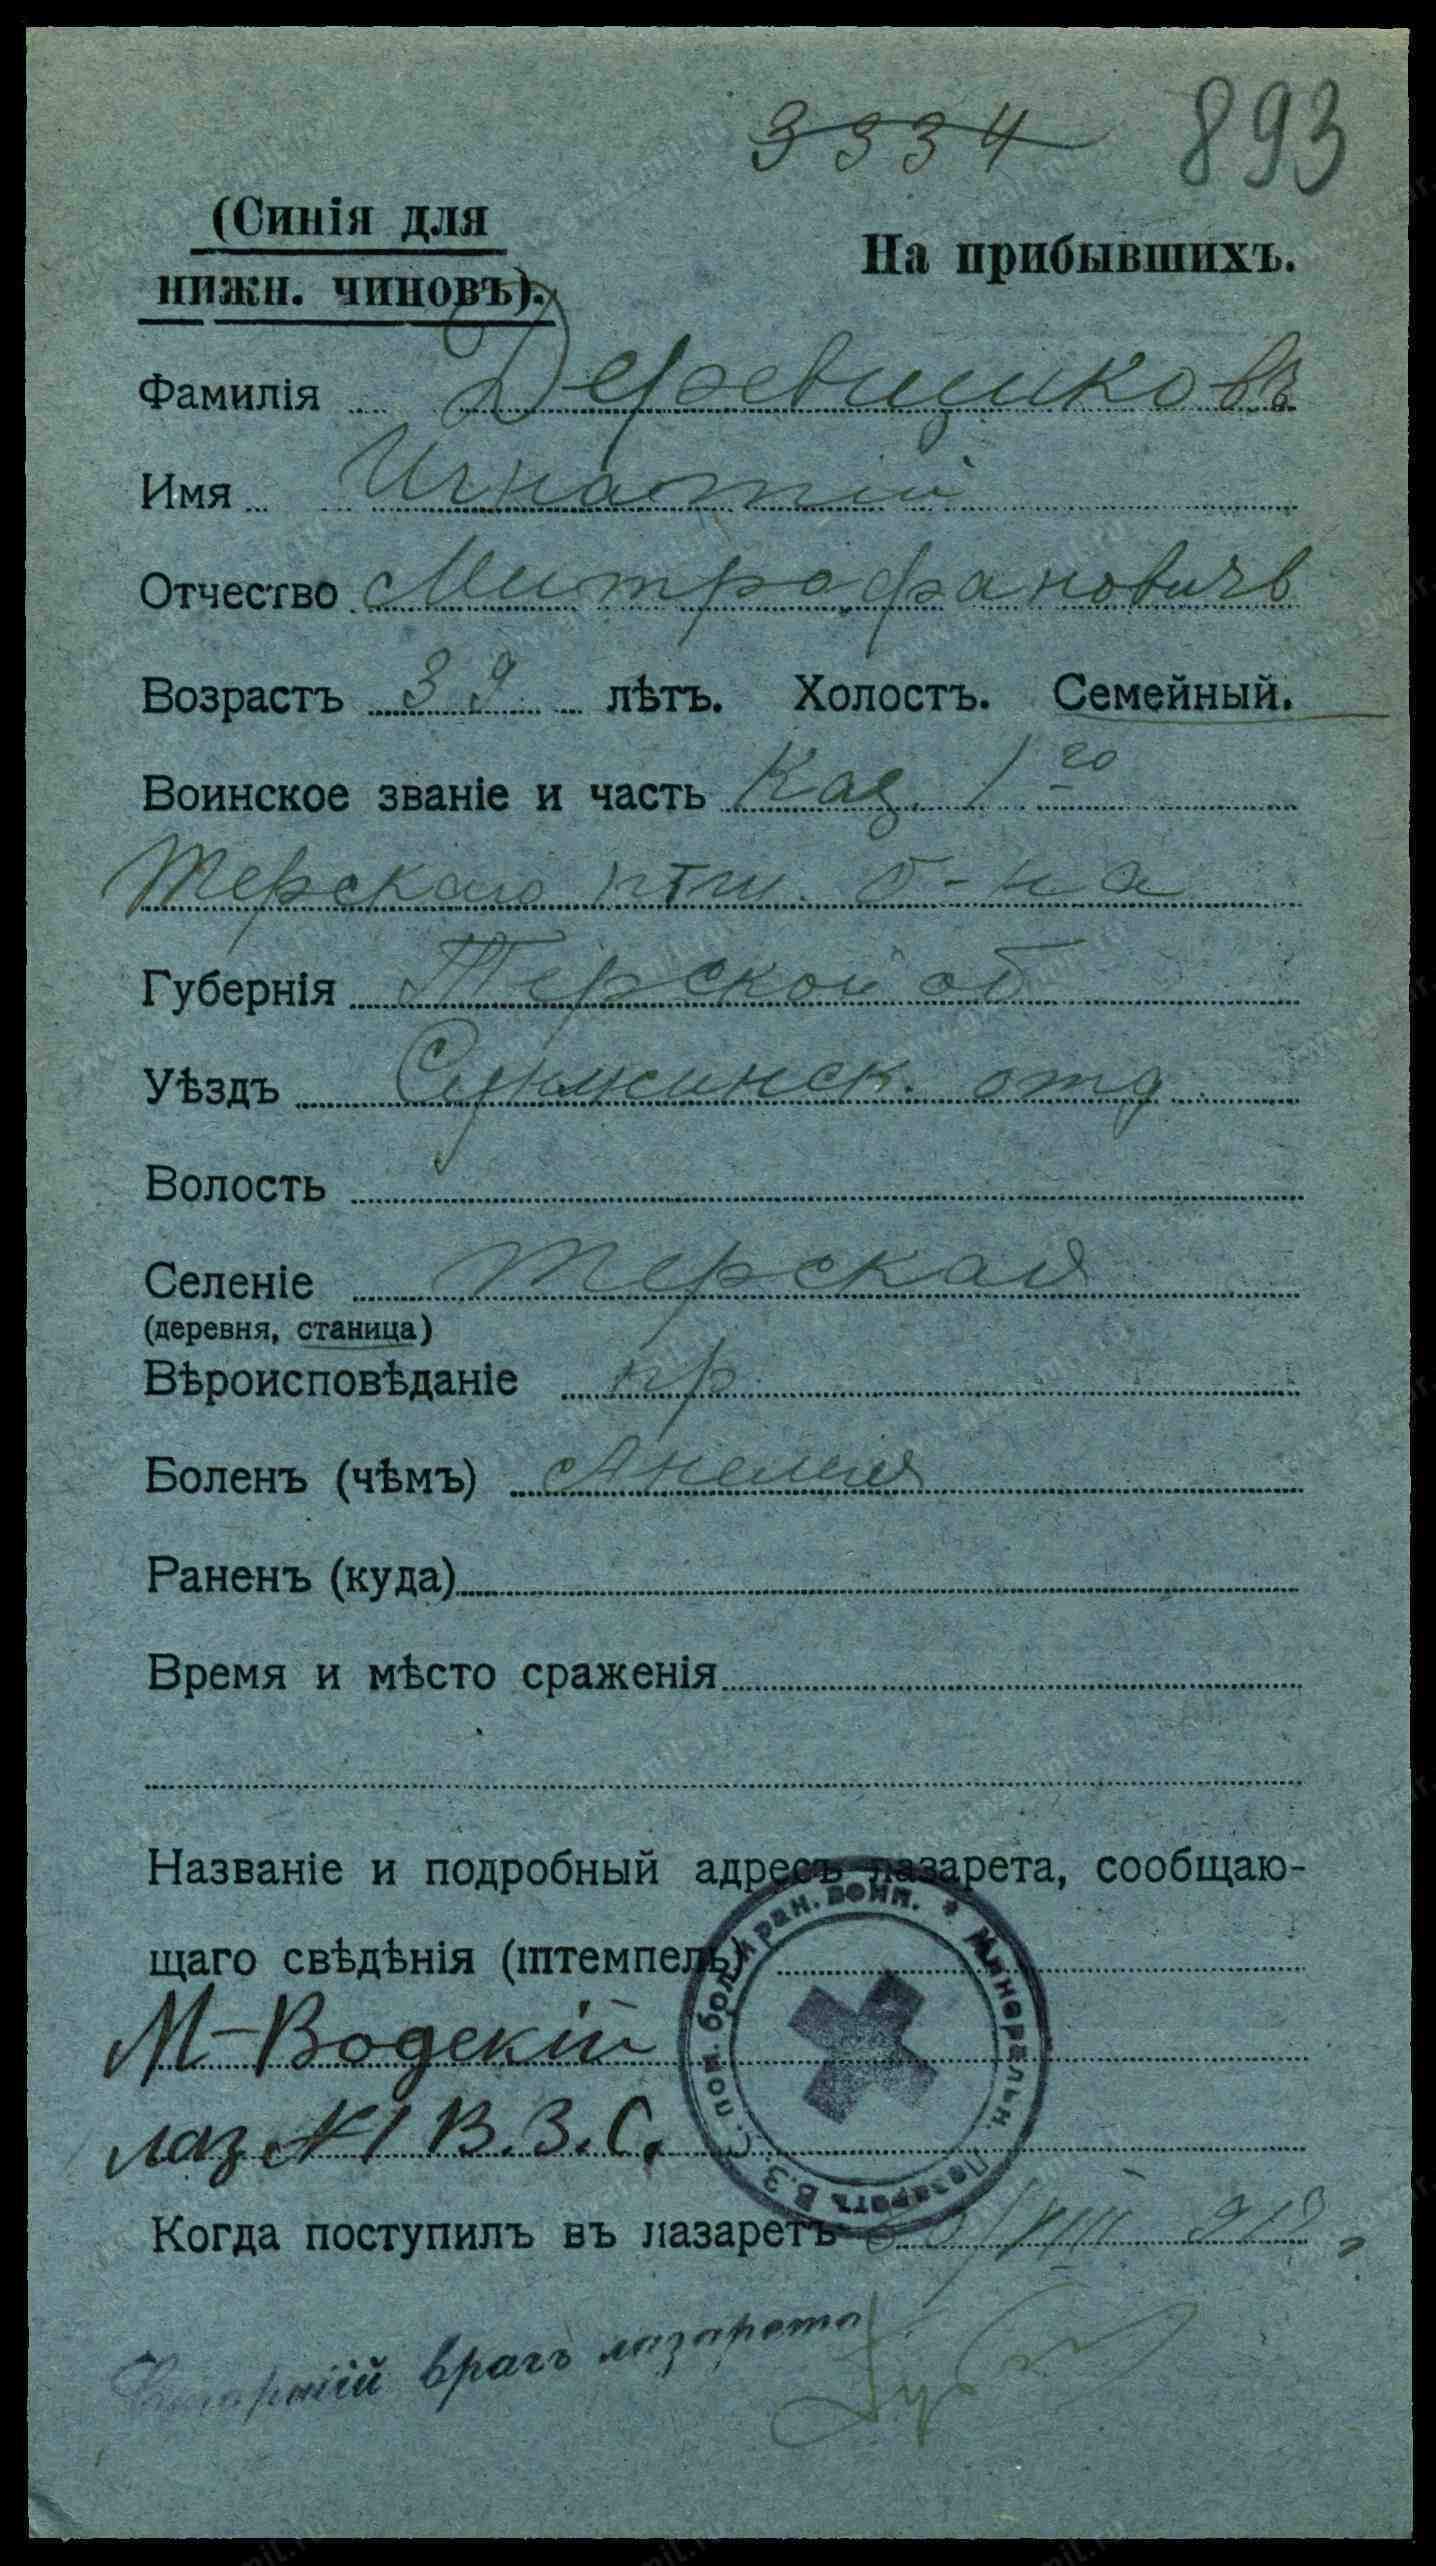 3334 893
(Синія для
нижн. чиновъ).
На прибывшихъ.
Фамилія Деревщиковъ
Имя Игнатій
Отчество Митрофановичъ
Возрастъ 39 лѣтъ. Холостъ. Семейный.
Воинское званіе и часть Каз. 1го
Терскаго пеш. б-на
Губернія Терской об
Уѣздъ Сунженск. отд
Волость
Селеніе Терская
(деревня, станица)
Вѣроисповѣданіе пр
Боленъ (чѣмъ) Анемия
Раненъ (куда)
Время и мѣсто сраженія
Названіе и подробный адресъ лазарета, сообщаю-
щаго свѣдѣнія (штемпель)
М-Водскій
лаз. №1 В.З.С.
Минеральн. Лазаретъ В.З.С. пом. бол. и ран. воин.
Когда поступилъ въ лазаретъ VIII
Старшій врачъ лазарета